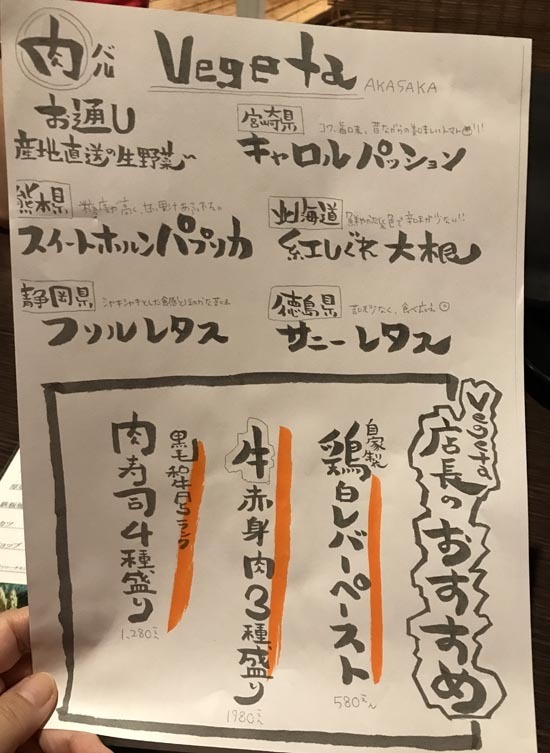 肉バル Vegeta AKASAKA
お通し
産地直送の生野菜
宮崎県 コク、旨味、昔ながらの美味しいトマト!!!
キャロルパッション
熊本県
スイートホルンパプリカ
北海道 鮮やかな紅色で辛味が少ない!!
紅しぐれ大根
静岡県 シャキシャキとした食感とほのかな苦味
フリルレタス
徳島県 苦味少なく、食べ応え
サニーレタス
Vegeta
店長のおすすめ
自家製
鶏白レバーペースト
580えん
牛赤身肉3種盛り
1980えん
黒毛和牛A5ランク
肉寿司4種盛り
1,280えん